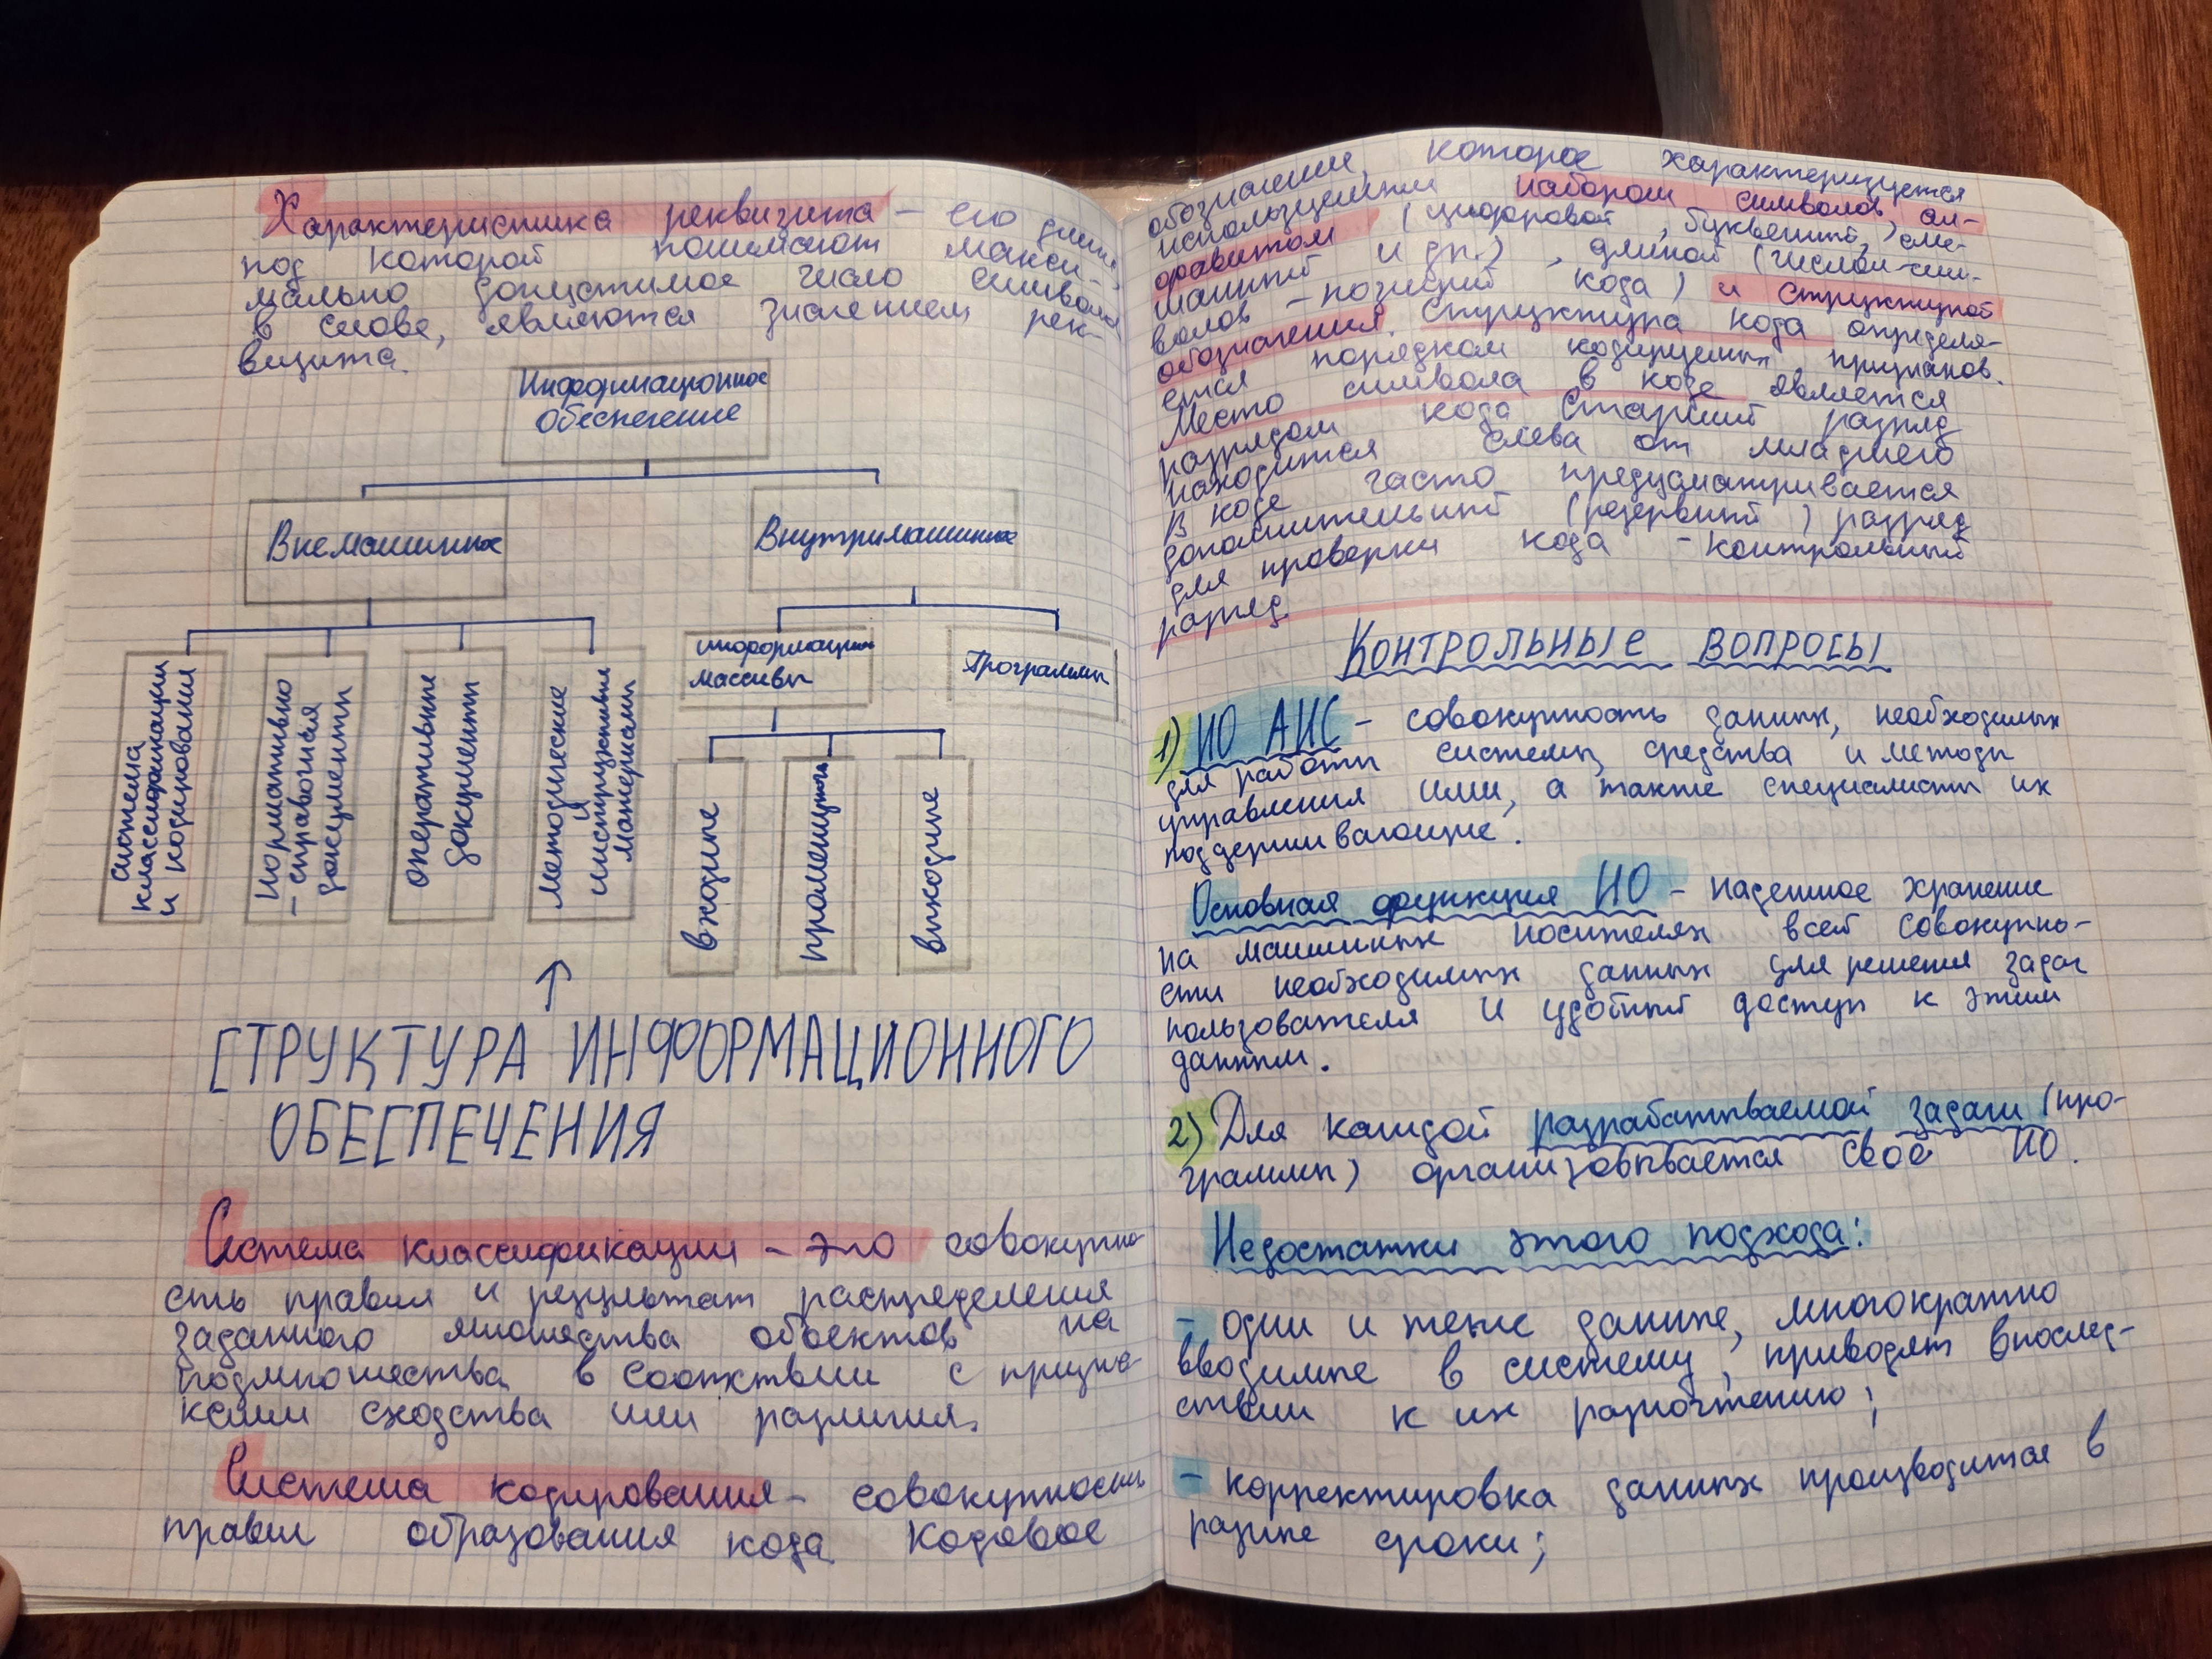 Характеристика реквизита – его длина,
под которой понимают макси-
мально допустимое число символов
в слове, являются значением рек-
визита.
Информационное
обеспечение
Внемашинное
Внутримашинное
система
классификации
и кодирования
Нормативно
– справочная
документы
Оперативные
документы
Методические
и
инструктивные
материалы
информацион
массивы
Программы
входные
промежуточ
выходные
СТРУКТУРА ИНФОРМАЦИОННОГО
ОБЕСПЕЧЕНИЯ
Система классификации – это совокупно-
сть правил и результат распределения
заданного множества объектов на
подмножества в соотвтвии с призна-
ками сходства или различия.
Система кодирования – совокупность
правил образования кода. Кодовое
обозначения, которое характеризуется
используемым набором символов, ал-
фавитом (цифровой, буквенный, сме-
шанный и др.), длиной (числом сим-
волов – позиций кода) и структурой
обозначения. Структура кода определя-
ется порядком кодируемых признаков.
Место символа в коде является
разрядом кода Старший разряд
находится слева от младшего
В коде часто предусматривается
дополнительный (резервный) разряд
для проверки кода – контрольный
разряд.
КОНТРОЛЬНЫЕ ВОПРОСЫ
1) ИО АИС – совокупность данных, необходимых
для работы системы, средства и методы
управления ими, а также специалисты их
поддерживающие.
Основная функция ИО – надежное хранение
на машинных носителях всей совокупно-
сти необходимых данных для решения задач
пользователя и удобный доступ к этим
данным.
2) Для каждой разрабатываемой задачи (про-
граммы) организовывается своё ИО.
Недостатки этого подхода:
– одни и теже данные, многократно
вводимые в систему, приводят впослед-
ствии к их разночтению;
– корректировка данных производится в
разные сроки;